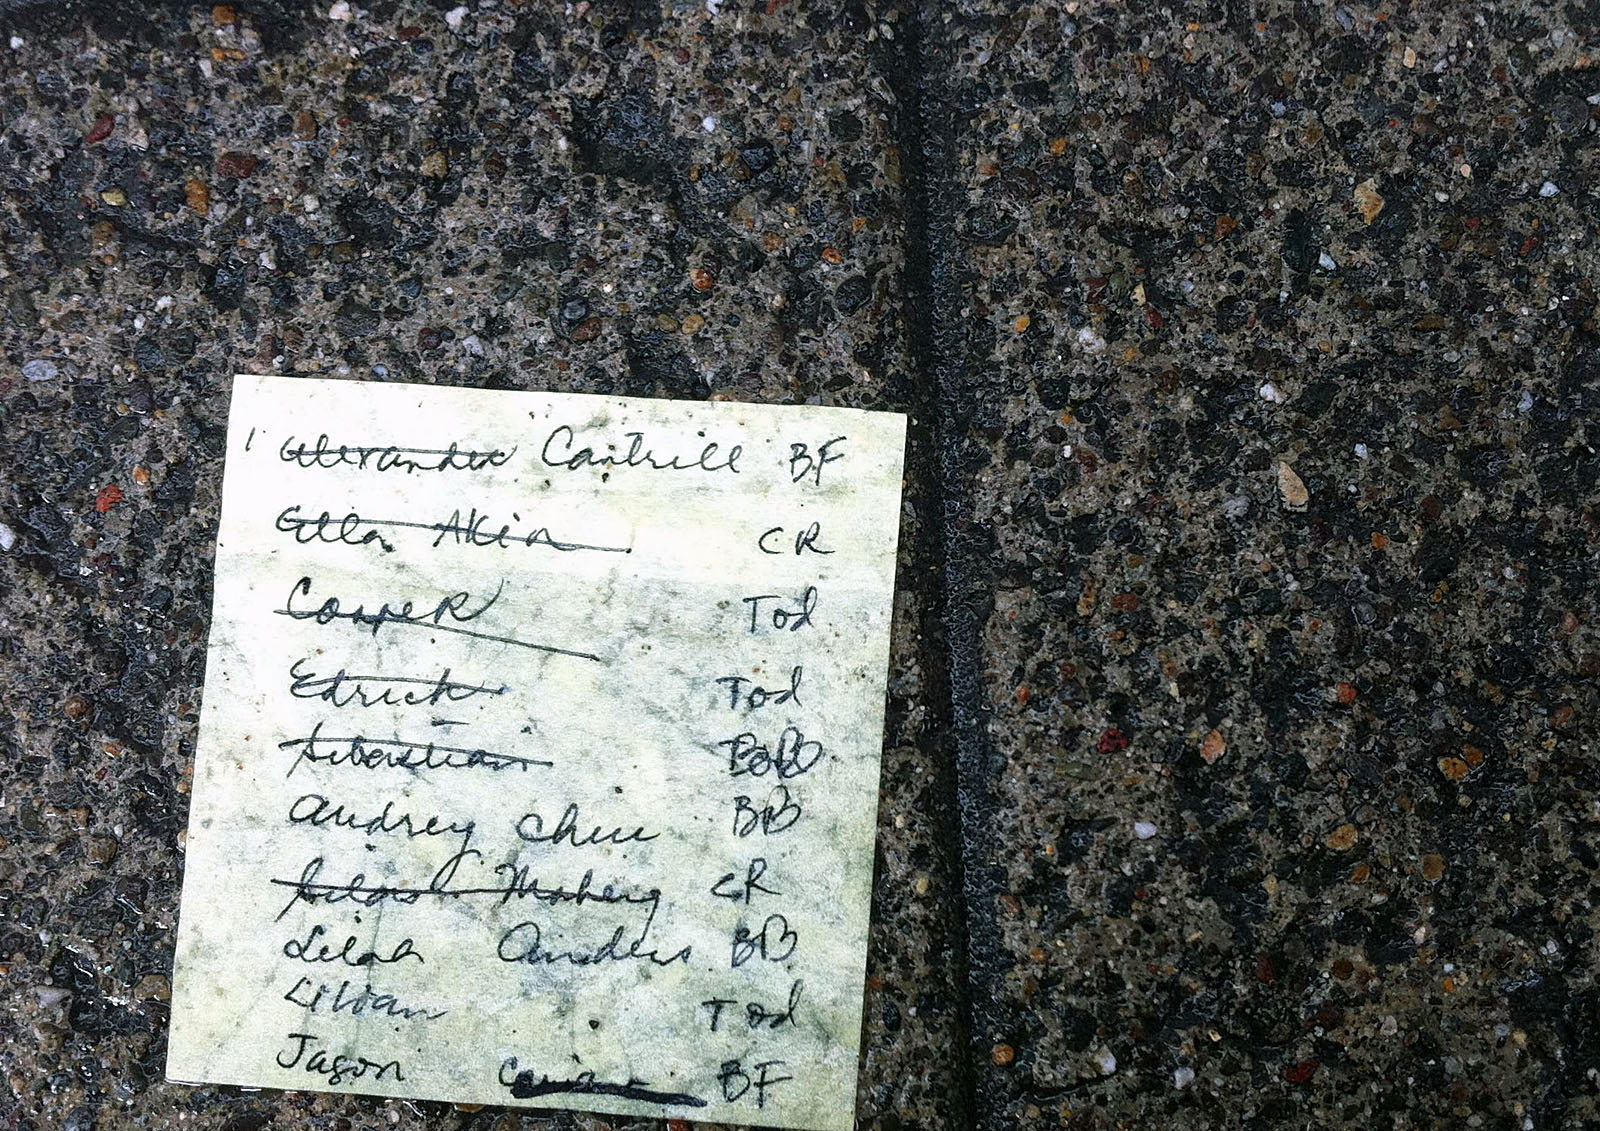 1 Alexander Cantrill BF
Ella Akin CR
Cooper Tod
Edrick Tod
Sebastian BB
Audrey Chiu BB
Silas Moheng CR
Lilah Anders BB
Lilian Tod
Jason BF